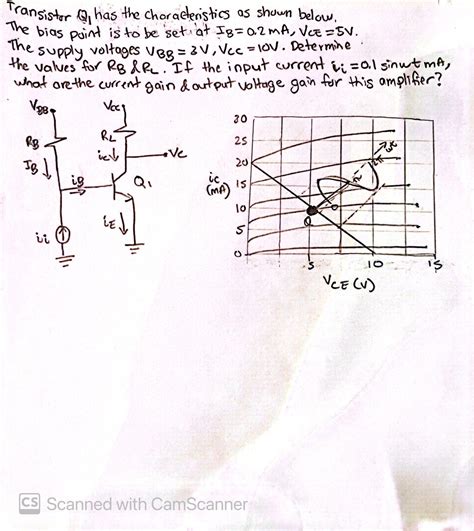 Transistor Q1 has the characteristics as shown below.
The bias point is to be set at IB=0.2mA, VCE=5V.
The supply voltages VBB=3V, Vcc=10V. Determine
the values for RB & RL. If the input current ii=0.1 sinwt mA,
what are the current gain & output voltage gain for this amplifier?
VBB
Vcc
RB
RL
IB
ic
Vc
iB
Q1
iE
ii
30
25
20
ic
(mA)
15
10
5
0
Q
5
10
15
VCE (V)
CS Scanned with CamScanner